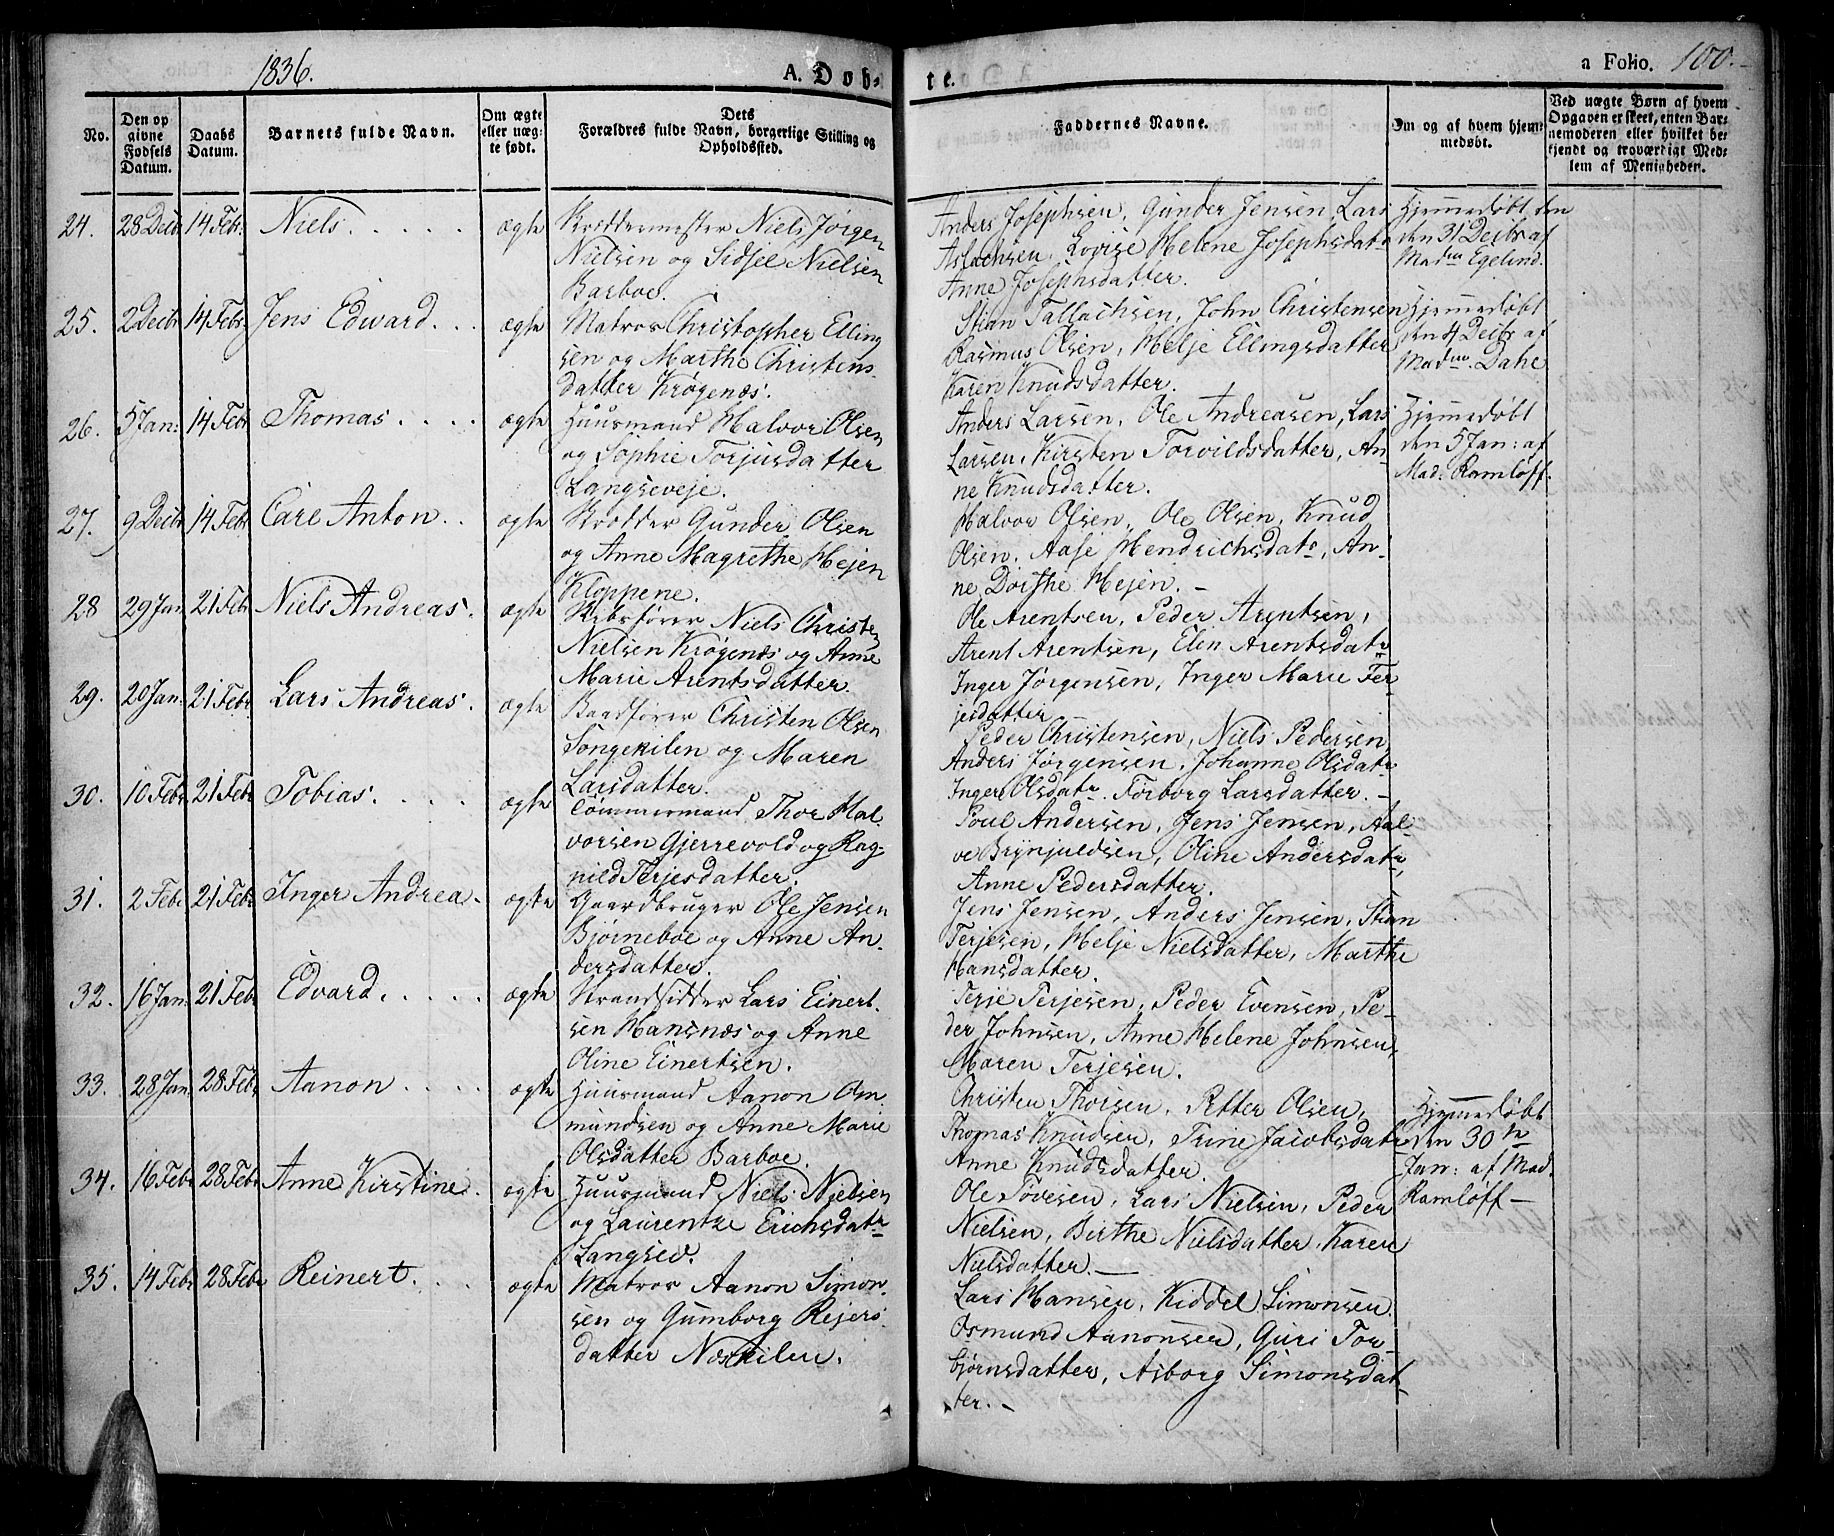 1836.
A. Døb-
te.
a Folio. 100.
No.
Den op
givne
Fødsels
Datum.
Daabs
Datum.
Barnets fulde Navn.
Om ægte
eller uæg-
te født.
Dets
Forældres fulde Navn, borgerlige Stilling og
Opholdssted.
Faddernes Navne.
Om og af hvem hjem-
medøbt.
Ved uægte Børn af hvem
Opgaven er skeet, enten Bar-
nemoderen eller hvilket be-
kjendt og troværdigt Med-
lem af Menigheden.
24. 28 Decbr 14 Febr. Niels. ægte Skræddermester Niels Jørgen
Nielsen og Sidsel Nielsen
Barboe.
Anders Josephsen, Gunder Jensen, Lars
Aslachsen, Lovise Helene Josephsdatr
Anne Josephsdatter.
Hjemmedøbt den
den 31 Decbr af
Madm Egelund.
25. 2 Decbr 14 Febr. Jens Edward. ægte Matros Christopher Elling
sen og Marthe Christens-
datter Krøgenæs.
Stian Tallachsen, John Christensen
Rasmus Olsen, Helje Ellingsdatter
Karen Knudsdatter.
Hjemmedøbt
den 4 Decbr af
Madm. Dahl
26. 5 Jan: 14 Febr Thomas. ægte Huusmand Halvor Olsen
og Sophie Torjusdatter
Langseveje.
Anders Larsen, Ole Andreasen, Lars
Larsen, Kirsten Torvildsdatter, An-
ne Knudsdatter.
Hjemmedøbt
den 5 Jan: af
Mad: Ramløff.
27. 9 Decbr 14 Febr Carl Anton. ægte Skrædder Gunder Olsen
og Anne Magrethe Hejen
Kloppene.
Halvor Olsen, Ole Olsen, Knud
Olsen, Aase Hendrichsdatr, An-
ne Dorthe Hejen. -
28 29 Jan. 21 Febr Niels Andreas. ægte Skibsfører Niels Christen
Nielsen Krøgenæs og Anne
Marie Arentsdatter.
Ole Arentsen, Peder Arentsen,
Arent Arentsen, Elen Arentsdatr
Inger Jørgensen, Inger Marie Ter-
jesdatter
29. 20 Jan. 21 Febr. Lars Andreas. ægte Baadfører Christen Olsen
Songekilen og Maren
Larsdatter.
Peder Christensen, Niels Pedersen,
Anders Jørgensen, Johanne Olsdatr
Inger Olsdatr. Torborg Larsdatter. -
30. 10 Febr 21 Febr Tobias. ægte Tømmermand Thor Hal-
vorsen Gjerrevold og Rag-
nild Terjesdatter.
Poul Andersen, Jens Jensen, Aal-
ve Brynjuldsen, Oline Andersdatr,
Anne Pedersdatter.
31. 2 Febr 21 Febr Inger Andrea. ægte Gaardbruger Ole Jensen
Bjørneboe og Anne An-
dersdatter.
Jens Jensen, Anders Jensen, Stian
Terjesen, Helje Nielsdatter, Marthe
Hansdatter.
32. 16 Jan: 21 Febr Edvard. ægte Strandsidder Lars Einert-
sen Hansnæs og Anne
Oline Einertsen.
Terje Terjesen, Peder Evensen, Pe-
der Johnsen, Anne Helene Johnsen,
Maren Terjesen.
33. 28 Jan. 28 Febr Aanon. ægte Huusmand Aanon Om-
mundsen og Anne Marie
Olsdatter Barboe.
Christen Thorsen, Petter Olsen,
Thomas Knudsen, Trine Jacobsdatr
Anne Knudsdatter.
Hjemmedøbt
den 30te
Jan: af Mad.
Ramløff -
34. 16 Febr 28 Febr Anne Kirstine. ægte Huusmand Niels Nielsen
og Laurentze Erichsdatr
Langsev.
Ole Tovesen, Lars Nielsen, Peder
Nielsen, Birthe Nielsdatter, Karen
Nielsdatter. -
35. 14 Febr 28 Febr Reinert. ægte Matros Aanon Simon-
sen og Gumborg Rejers-
datter Næskilen.
Lars Hansen, Kiddel Simonsen
Osmund Aanonsen, Guri Tor-
bjørnsdatter, Asborg Simonsdat-
ter. -